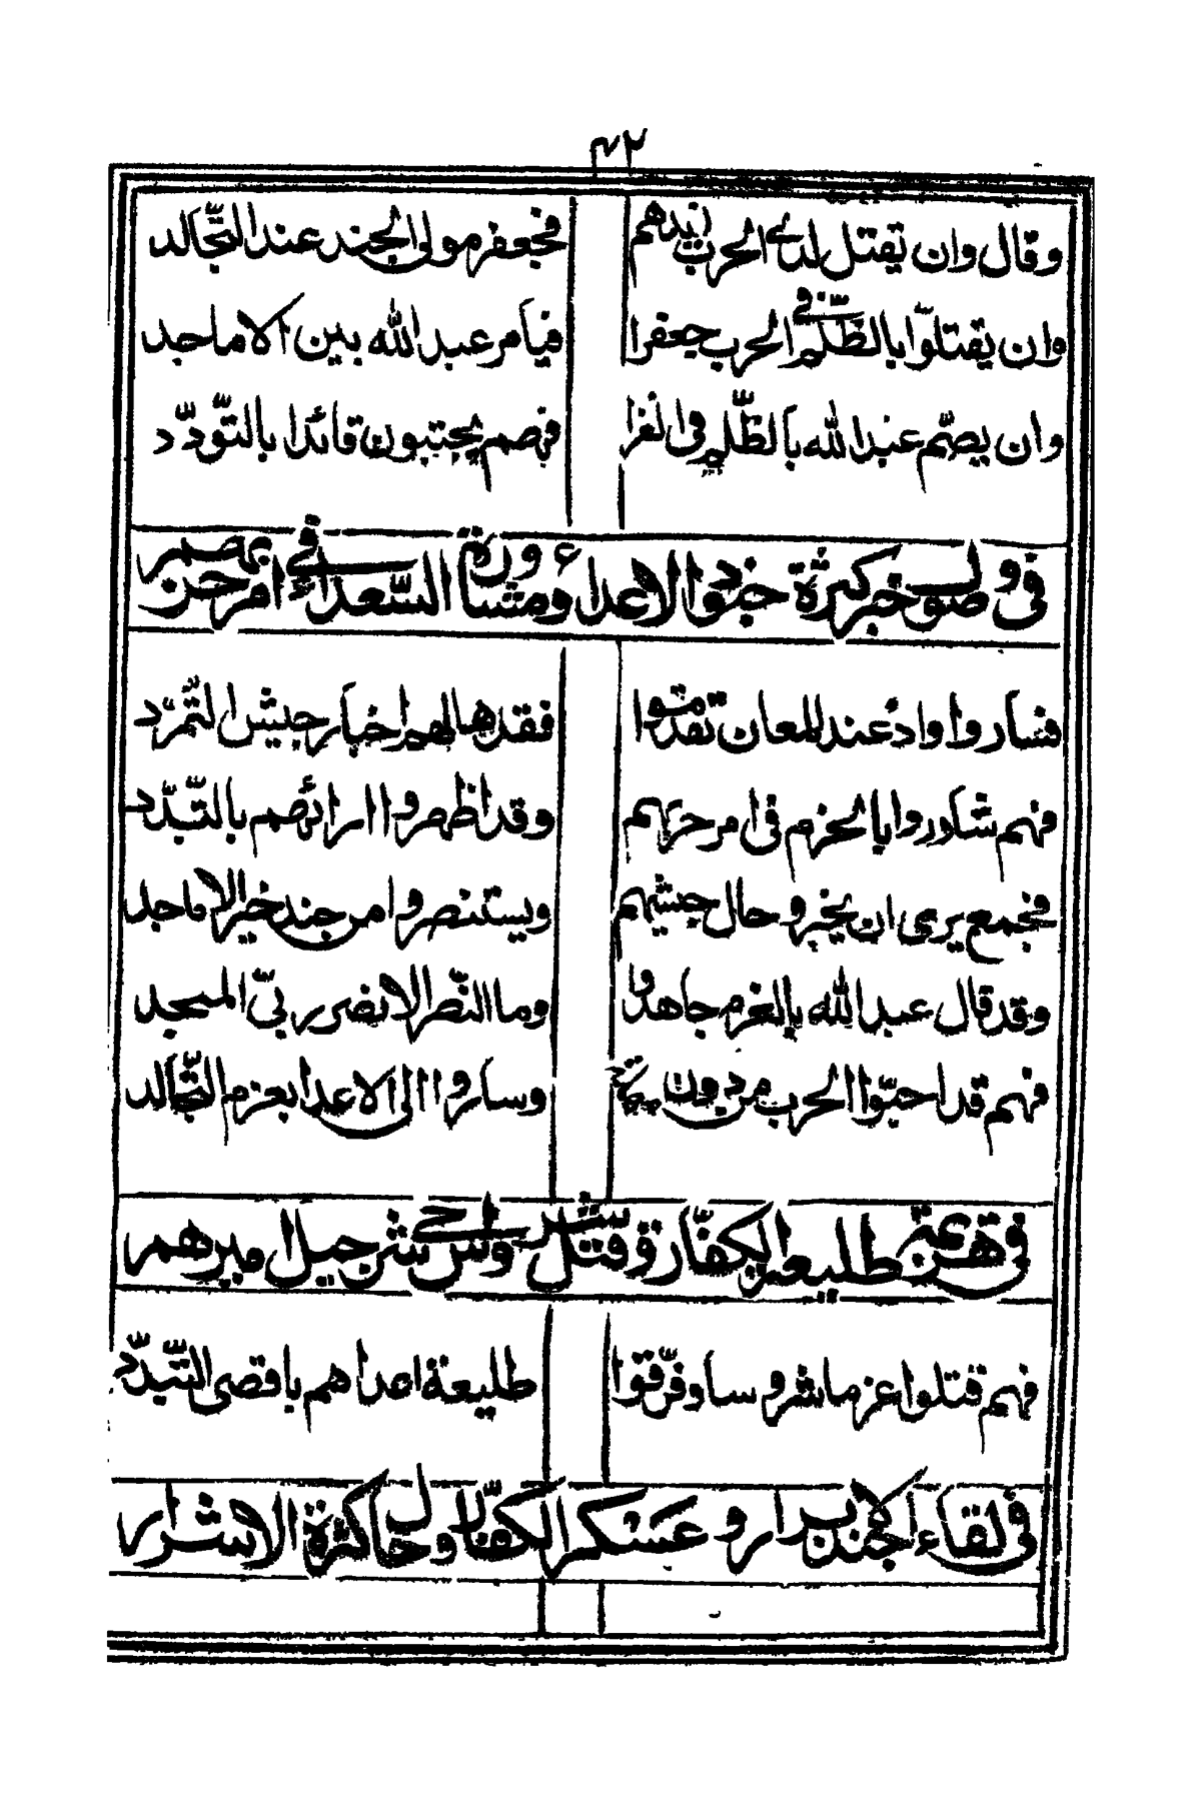 ٤٢
وقال وان يقتل لدى الحرب زيدهم فجعفر مولى الجند عند التجالد
وان يقتلوا بالظلم في الحرب جعفرا فيامر عبد الله بين الاماجد
وان يصم عبد الله بالظلم فى الغزا فهم يجتبون قائدا بالتودد
فى وصول خبر كثرة جنود الاعداء ومشاورة السعداء فى امر حربهم
فساروا واد عند المعان تقدموا فقدهالهم اخبار جيش التمرد
فهم شاوروا بالحزم فى امر حربهم وقد اظهروا ارائهم بالتبدد
فجمع يرى ان يخبروا حال جيشهم ويستنصروا من جند خير الاماجد
وقد قال عبد الله بالعزم جاهدوا وما النصر الا نضر ربى الممجد
فهم قد احبوا الحرب من دون وساروا الى الاعدا بعزم التجالد
فى هزيمة طليعة الكفار وقتل شرحبيل اميرهم
فهم قتلوا عزما بشر وسا وفرقوا طليعة اعداهم باقصى التبدد
فى لقاء جند الابرار وعسكر الكفار وحال كثرة الاشرار